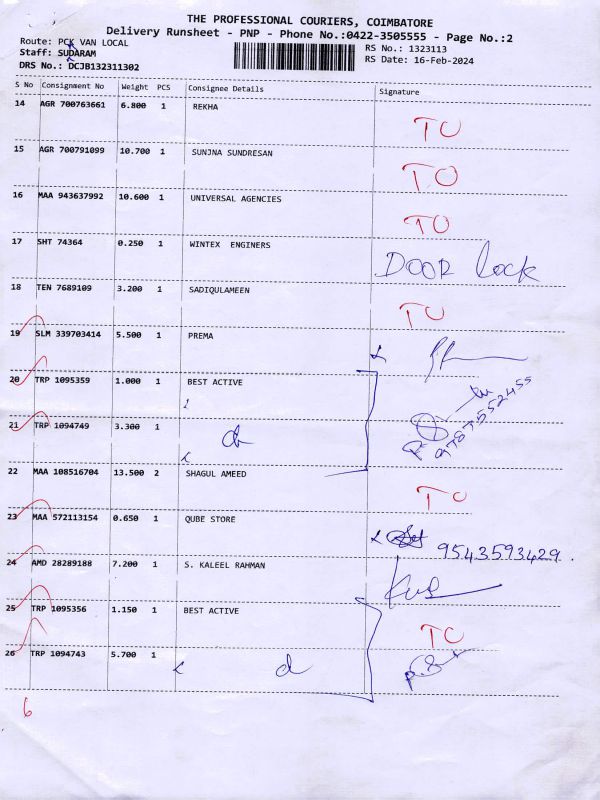 THE PROFESSIONAL COURIERS, COIMBATORE
Delivery Runsheet - PNP - Phone No.:0422-3505555 - Page No.:2
Route: PCK VAN LOCAL
RS No.: 1323113
Staff: SUDARAM
RS Date: 16-Feb-2024
DRS No.: DCJB132311302
S No Consignment No Weight PCS Consignee Details Signature
14 AGR 700763661 6.800 1 REKHA
TO
15 AGR 700791099 10.700 1 SUNJNA SUNDRESAN
T.O
16 MAA 943637992 10.600 1 UNIVERSAL AGENCIES
TO
17 SHT 74364 0.250 1 WINTEX ENGINERS
DOOR lock
18 TEN 7689109 3.200 1 SADIQULAMEEN
TO
19 SLM 339703414 5.500 1 PREMA
20 TRP 1095359 1.000 1 BEST ACTIVE
21 TRP 1094749 3.300 1
do
22 MAA 108516704 13.500 2 SHAGUL AMEED
TO
23 MAA 572113154 0.650 1 QUBE STORE
9543593429.
24 AMD 28289188 7.200 1 S. KALEEL RAHMAN
25 TRP 1095356 1.150 1 BEST ACTIVE
TO
26 TRP 1094743 5.700 1
6